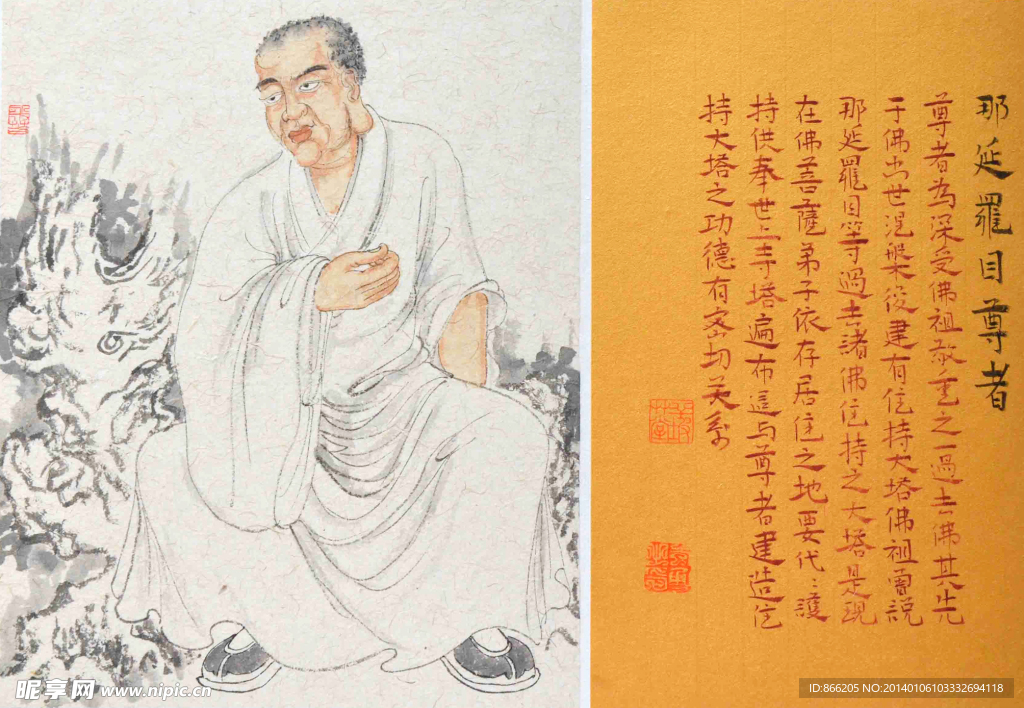 那延羅目尊者
尊者為深受佛祖敬重之一過去佛其先
于佛出世涅槃後建有住持大塔佛祖曾説
那延羅目等過去諸佛住持之大塔是現
在佛菩薩弟子依存居住之地要代〻護
持供奉世上寺塔遍布這与尊者建造住
持大塔之功德有密切关系
昵享网 www.nipic.cn
ID:866205 NO:20140106103332694118